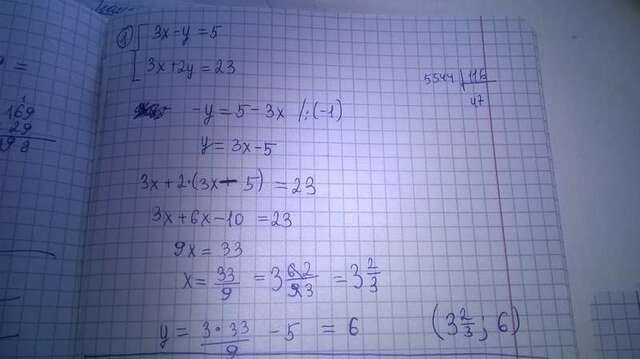 1) [ 3x-y=5
3x+2y=23
-y=5-3x /:(-1)
y=3x-5
3x+2·(3x-5)=23
3x+6x-10=23
9x=33
x=33/9=3 6 2/9 3=3 2/3
y=3·33/9 -5=6
(3 2/3; 6)
5544 | 116
47
169
29